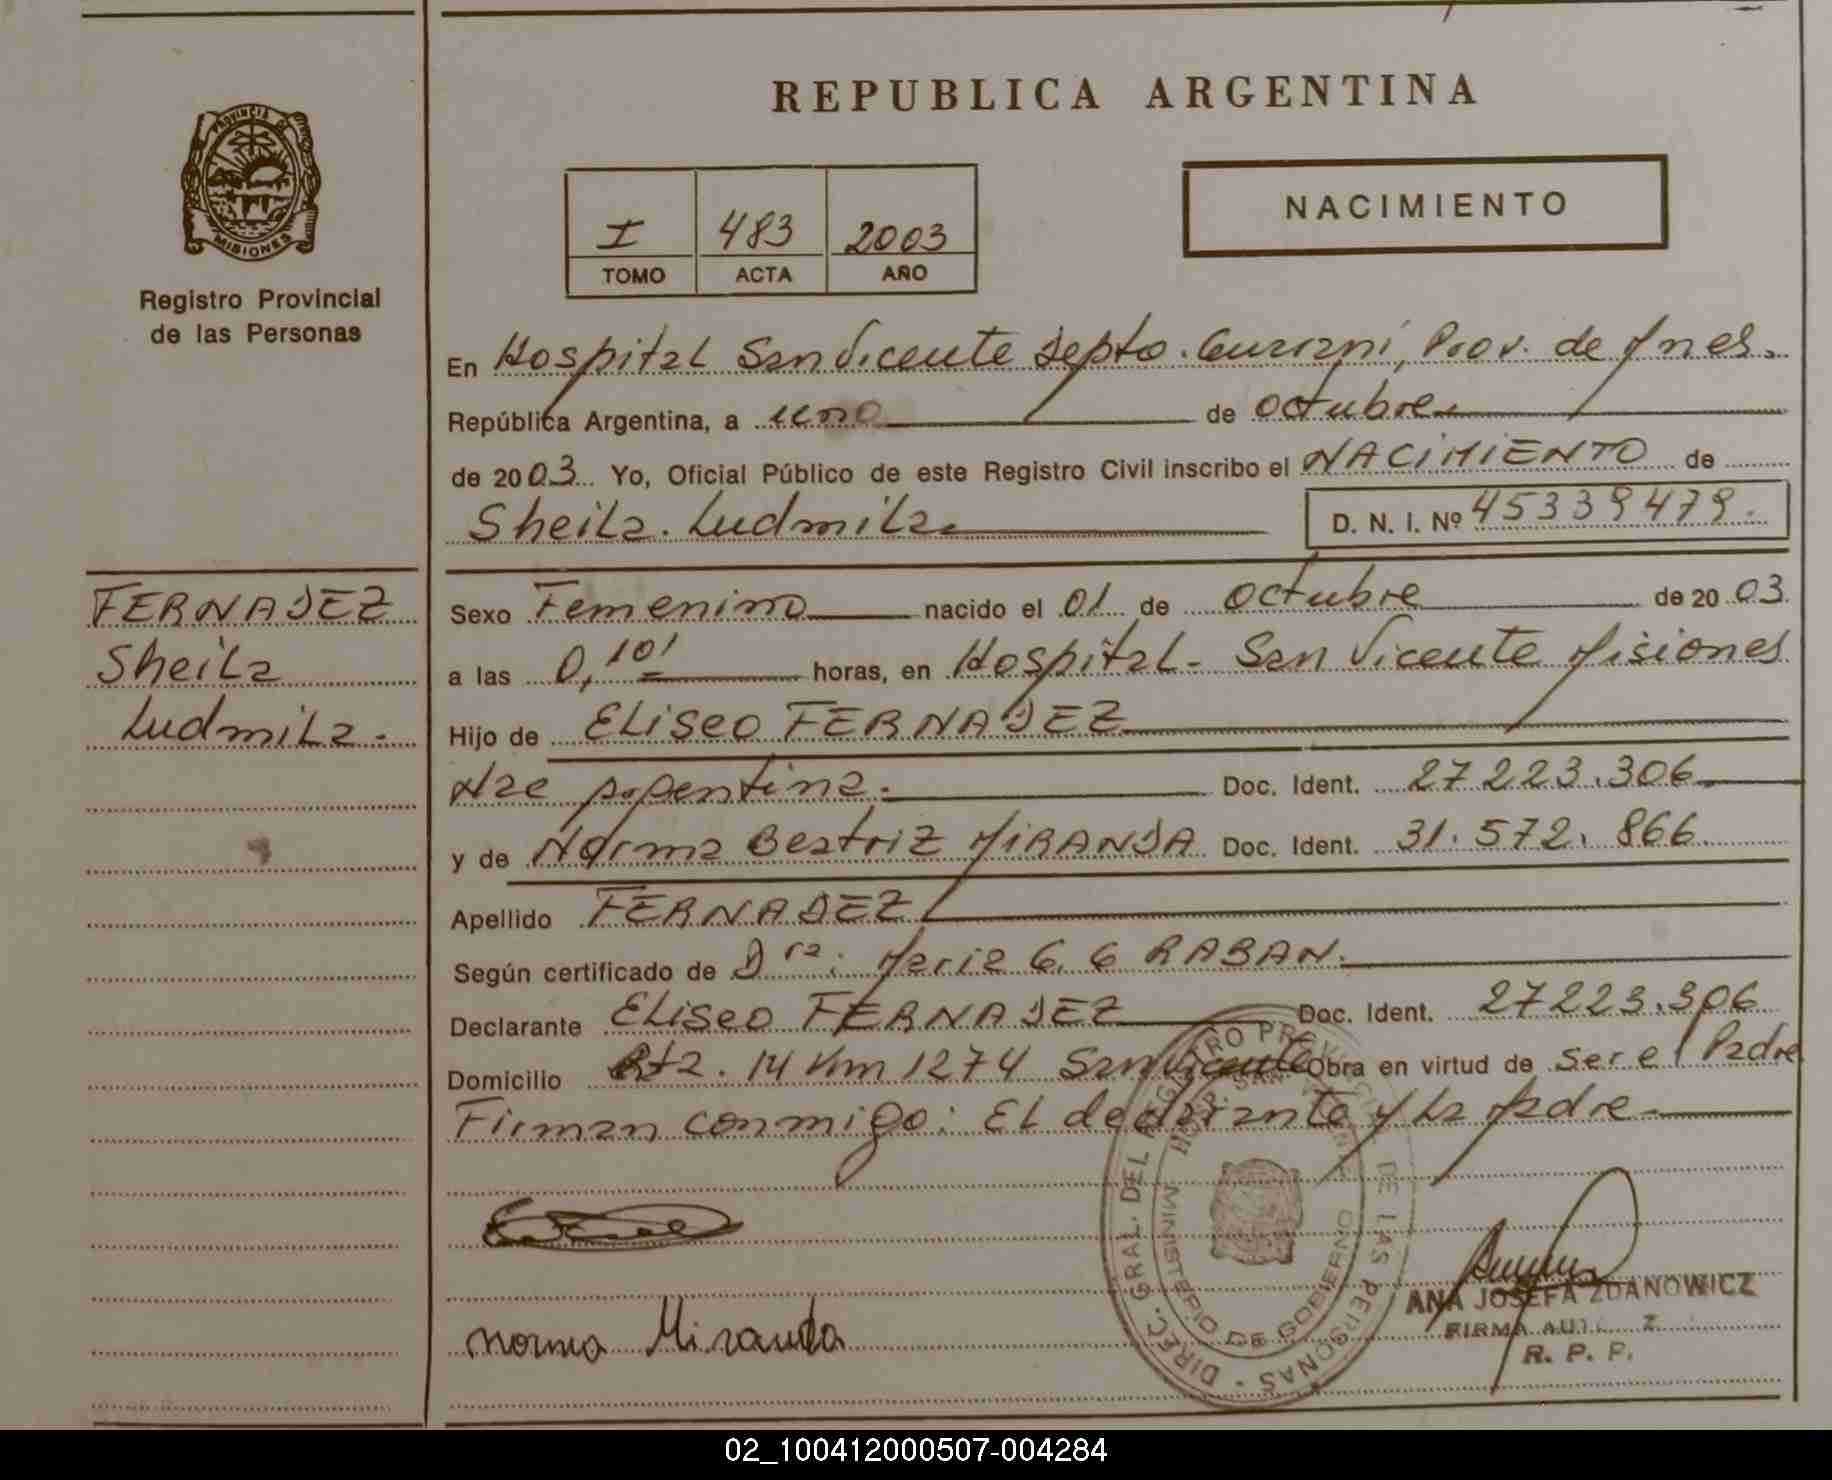 REPUBLICA ARGENTINA
PROVINCIA DE
MISIONES
Registro Provincial
de las Personas
I 483 2003
TOMO ACTA AÑO
NACIMIENTO
En Hospital San Vicente Depto. Guarani, Prov. de Mnes.
República Argentina, a uno de octubre
de 2003 Yo, Oficial Público de este Registro Civil inscribo el NACIMIENTO de
Sheila Ludmila D. N. I. Nº 45339479.
FERNADEZ
Sheila
Ludmila.
Sexo Femenino nacido el 01 de octubre de 2003
a las 0,10 horas, en Hospital - San Vicente Misiones
Hijo de ELiseo FERNADEZ
Nac Argentina. Doc. Ident. 27223.306
y de Norma Beatriz MIRANDA Doc. Ident. 31.572.866
Apellido FERNADEZ
Según certificado de Dra. Maria G. G RABAN.
Declarante ELiseo FERNADEZ Doc. Ident. 27223.306
Domicilio Rta. 14 Km 1274 San Vicente Obra en virtud de ser el Padre
Firman conmigo: EL declarante y La Madre
Norma Miranda
DIREC. GRAL. DEL REGISTRO PROVINCIAL DE LAS PERSONAS
MINISTERIO DE GOBIERNO
ANA JOSEFA ZDANOWICZ
FIRMA
R. P. P.
02_100412000507-004284